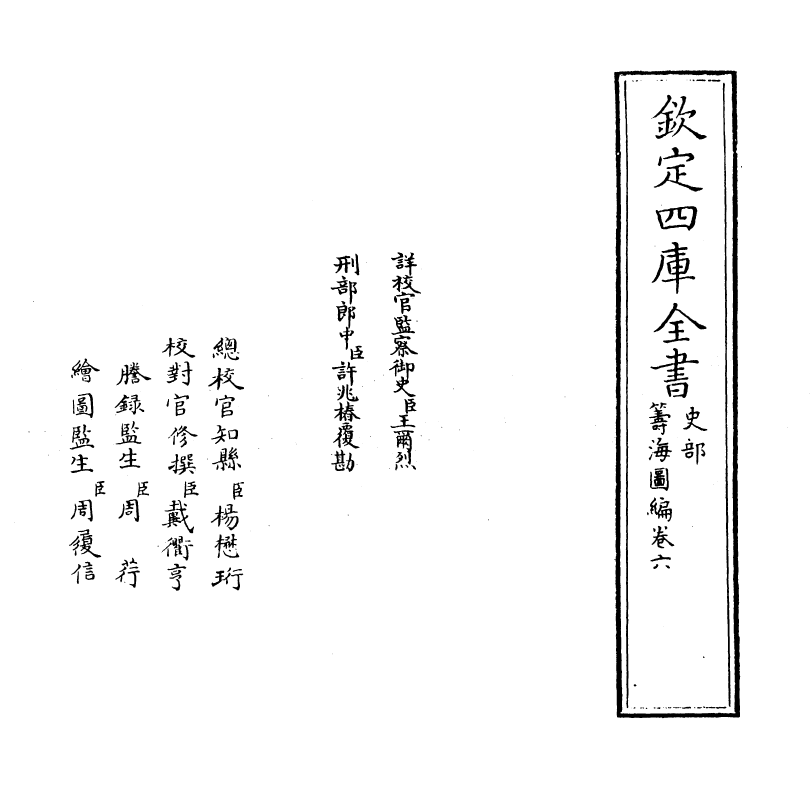 欽定四庫全書
史部
籌海圖編卷六
詳校官監察御史臣王爾烈
刑部郎中臣許兆椿覆勘
總校官知縣臣楊懋珩
校對官修撰臣戴衢亨
謄錄監生臣周荇
繪圖監生臣周履信